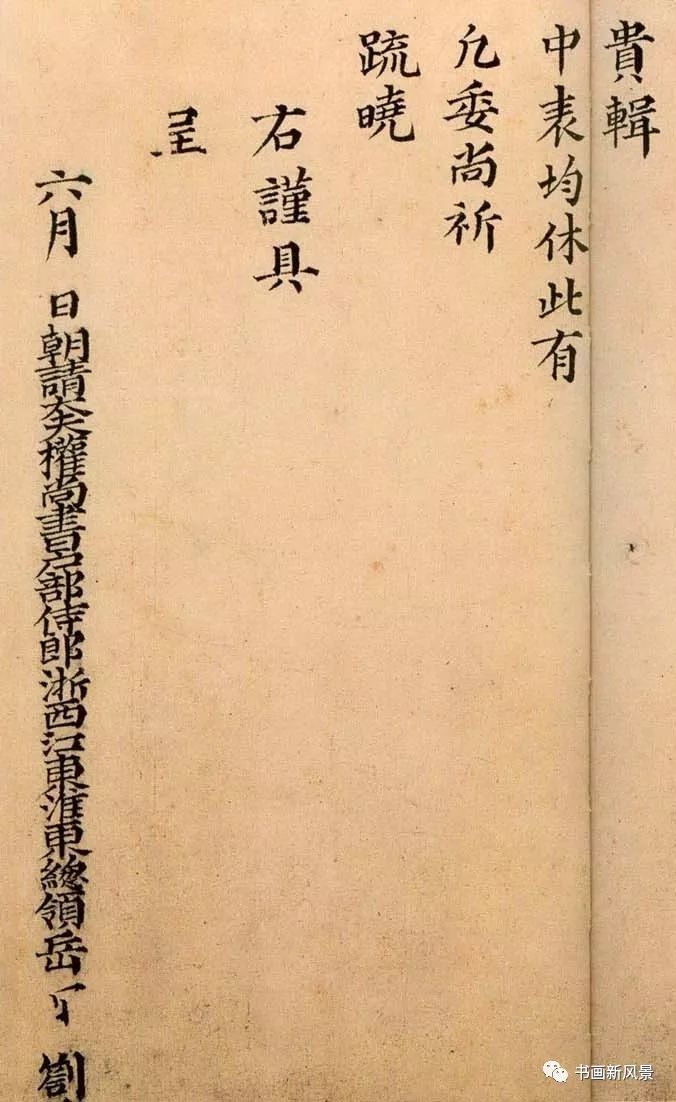 貴輯
中表均休此有
凡委尚祈
䟽曉
右謹具
呈
六月 日朝請大夫權尚書戶部侍郎浙西江東淮東總領岳 劄
书画新风景